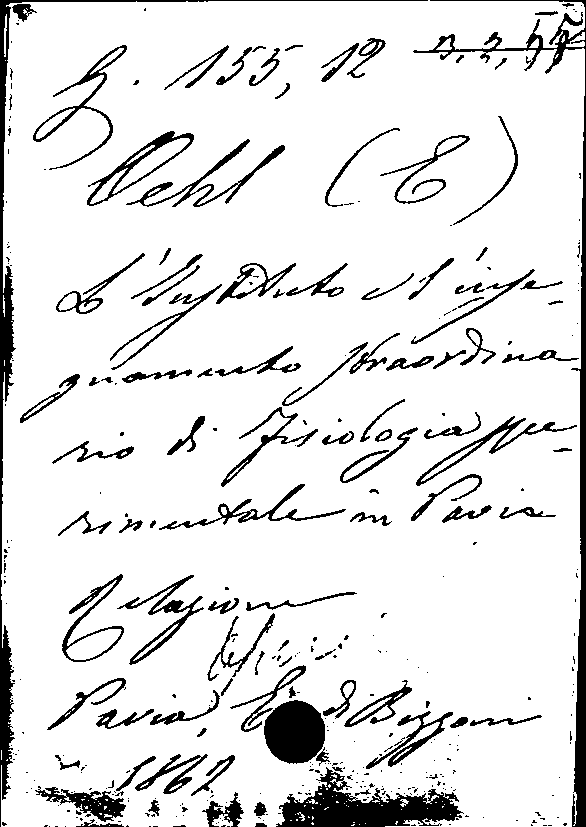 G. 155, 12
Oehl (E)
L'Instituto e l'inse-
gnamento straordina-
rio di Fisiologia spe-
rimentale in Pavia
Relazione
Pavia, E. di Bizzoni
1862